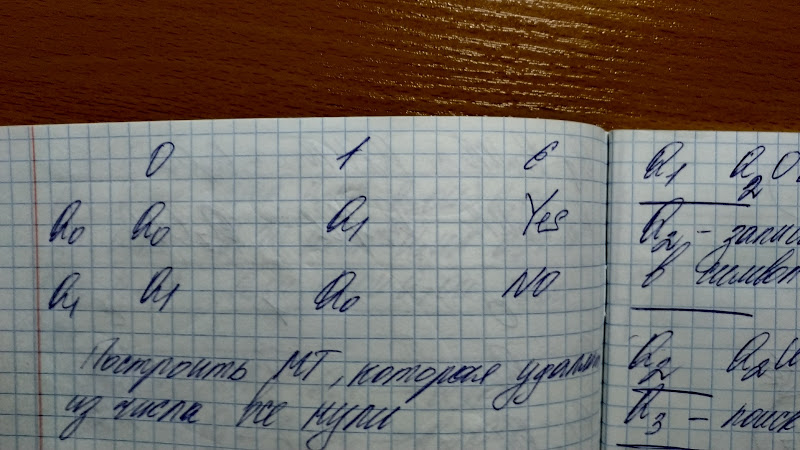 0 1 б
a0 a0 a1 Yes
a1 a1 a0 No
Построить МТ, которая удаля
из числа все нули
a1 a2 0
a2 - запис
в символ
a2 a2
a3 - поиск